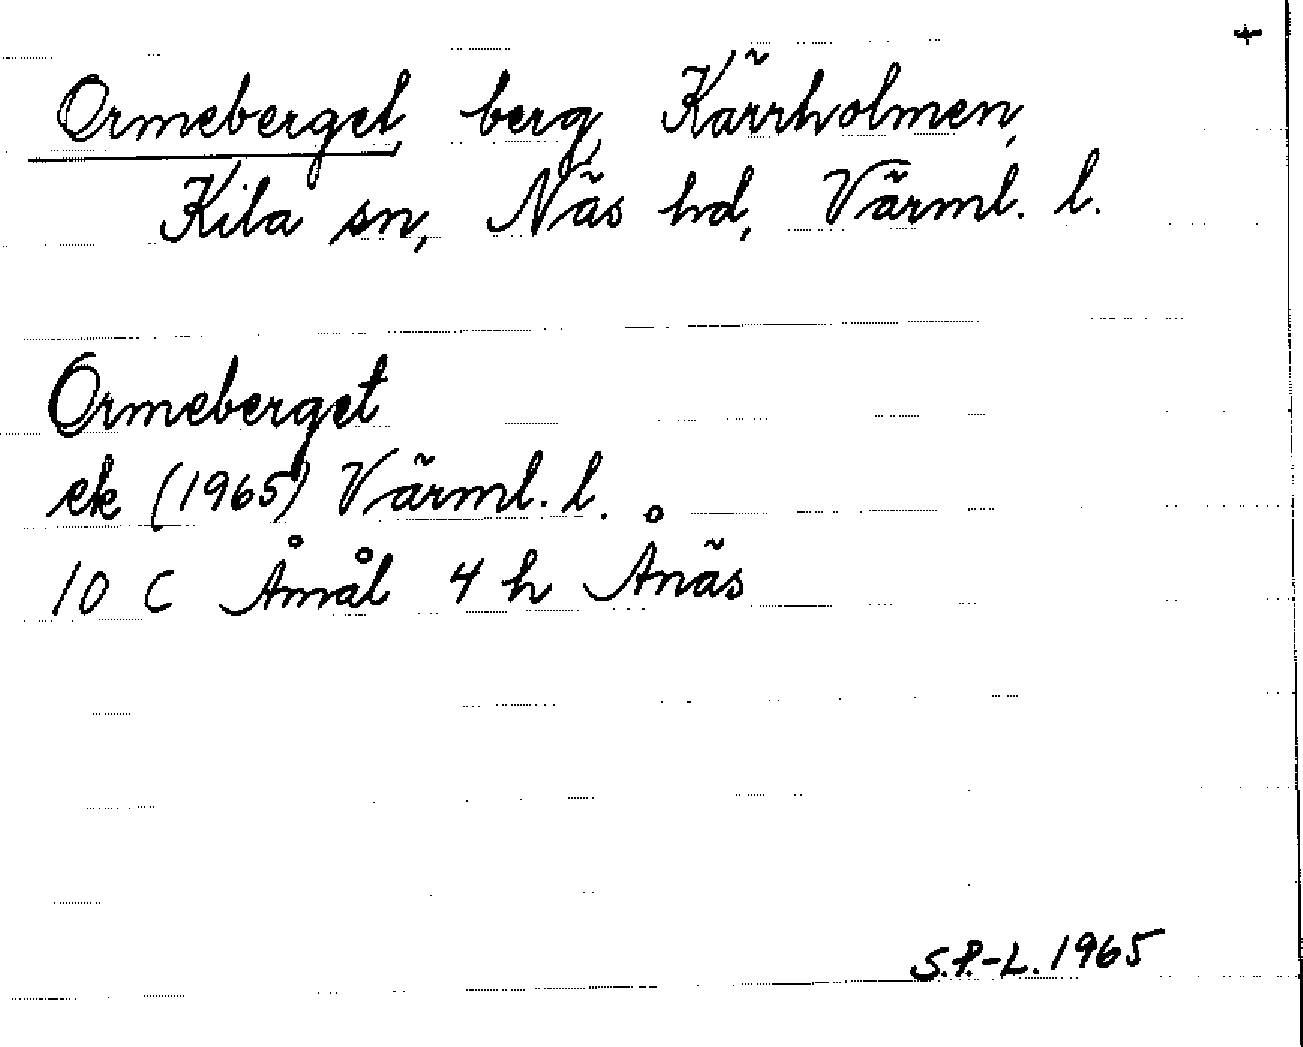 +
Ormeberget, berg, Kärrholmen,
Kila sn, Näs hd, Värml. l.
Ormeberget
ek (1965) Värml. l.
10 C Åmål 4 h Ånäs
S.P.-L. 1965